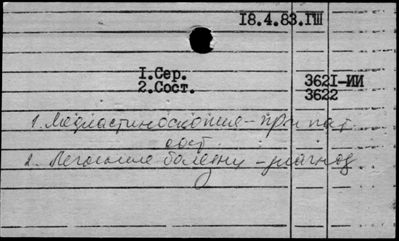 18.4.83.ГШ
1.Сер.
2.Сост.
3621-ИИ
3622
1. Медиастиноскопия - при пат.
сост.
2. Легочные болезни - диагноз